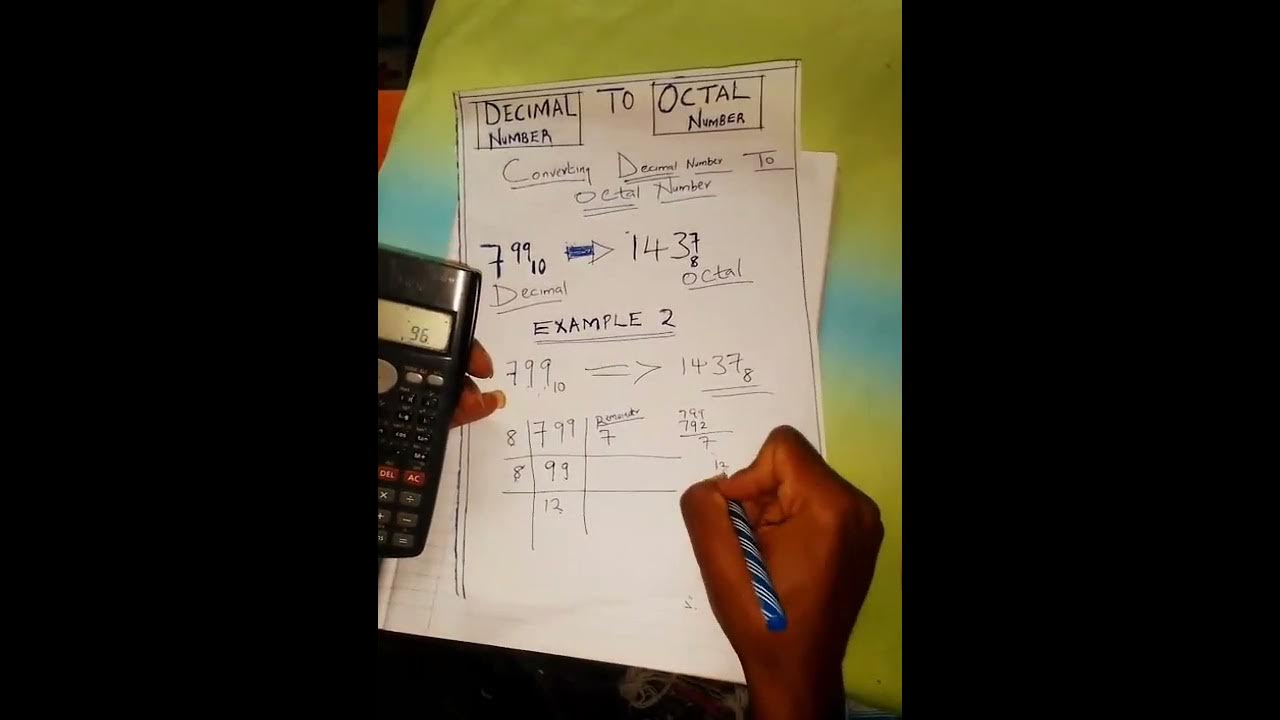 DECIMAL NUMBER TO OCTAL NUMBER
Converting Decimal Number To
Octal Number
799₁₀ ⇒ 1437₈
Decimal Octal
EXAMPLE 2
799₁₀ => 1437₈
Remainder
8 799 7
8 99
12
799
792
7
12
96
DEL AC